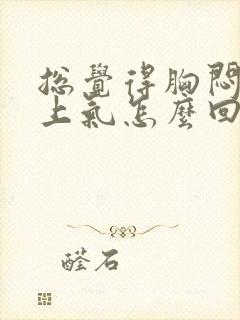 总覺得胸悶
上氣怎麼回
醛石